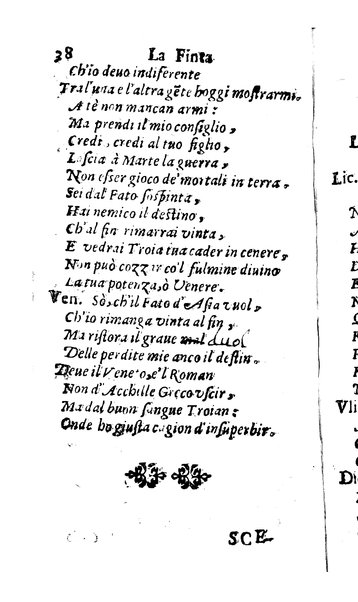 38 La Finta
Ch'io deuo indiferente
Tra l'una e l'altra gẽte hoggi mostrarmi.
A tè non mancan armi:
Ma prendi il mio consiglio,
Credi, credi al tuo figlio,
Lascia à Marte la guerra,
Non esser gioco de' mortali in terra,
Sei dal Fato sospinta,
Hai nemico il destino,
Ch'al fin rimarrai vinta,
E vedrai Troia tua cader in cenere,
Non può cozzir co'l fulmine diuino
La tua potenza, ò Venere.
Ven. Sò, ch'il Fato d'Asia vuol,
Ch'io rimanga vinta al fin,
Ma ristora il graue duol
Delle perdite mie anco il destin.
Deue il Veneto, e'l Roman
Non d'Acchille Greco vscir,
Ma dal buon sangue Troian:
Onde hò giusta cagion d'insuperbir.
SCE-
L
Lic.
Vli
Di